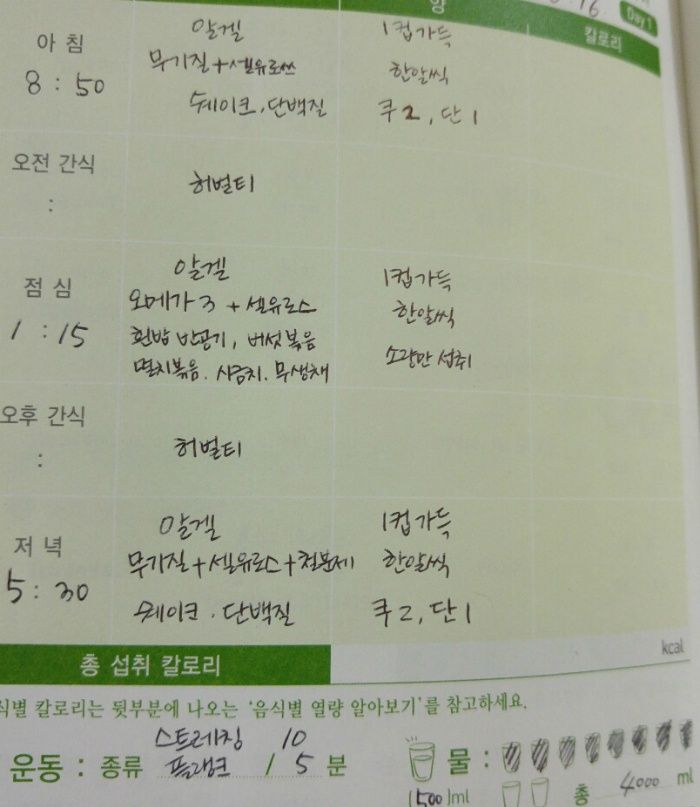 양
16.
Day 1
칼로리
아 침
8 : 50
알겔 1컵가득
무기질+셀유로쓰 한알씩
쉐이크.단백질 쿠2, 단1
오전 간식
:
허벌티
점 심
1 : 15
알겔 1컵가득
오메가3 + 셀유로스 한알씩
흰밥 반공기, 버섯볶음
멸치볶음. 시금치. 무생채 소량만 섭취
오후 간식
:
허벌티
저 녁
5 : 30
알겔 1컵가득
무기질+셀유로스+철분제 한알씩
쉐이크.단백질 쿠2, 단1
총 섭취 칼로리 kcal
식별 칼로리는 뒷부분에 나오는 '음식별 열량 알아보기'를 참고하세요.
운동 : 종류 스트레칭 10
플랭크 / 5 분
물 :
(500)ml 총 4000 ml